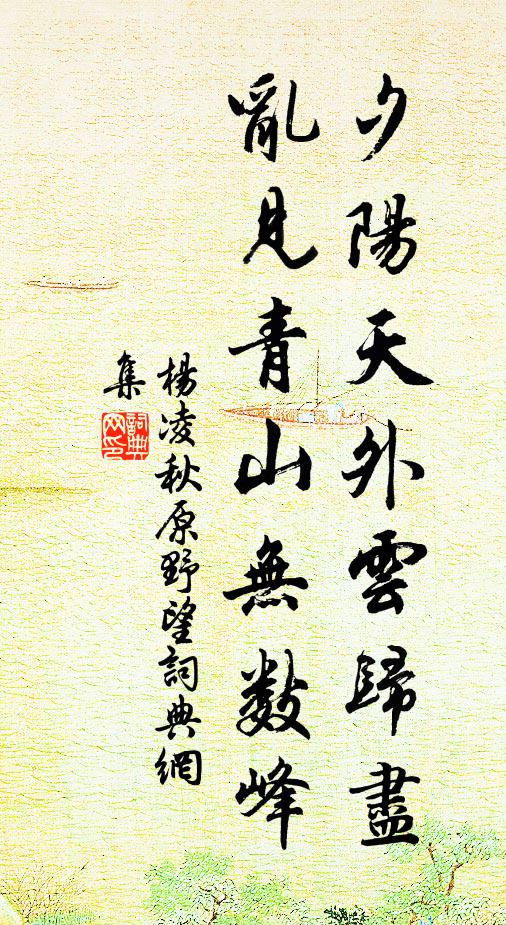 夕陽天外雲歸盡
亂見青山無數峰
楊凌秋原野望詞典網
集
詞典
网印